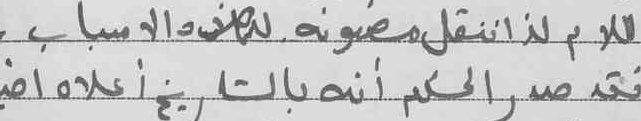 اللازم لذا ننتقل مضمونه لهذه والاسباب
فقد صدر الحكم أنه بالتاريخ أعلاه